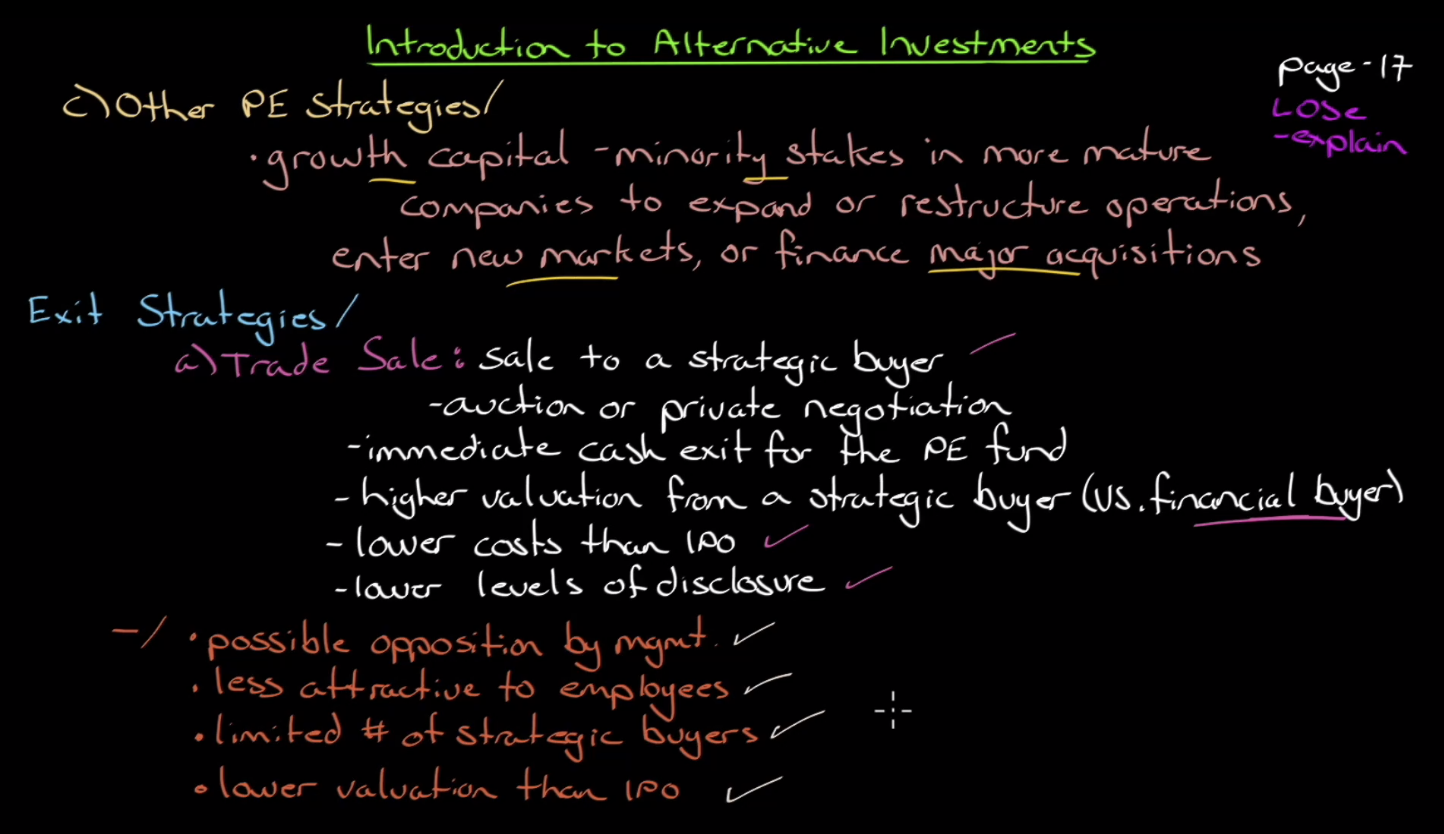 Introduction to Alternative Investments
page-17
LOSe
-explain
c) Other PE strategies/
• growth capital - minority stakes in more mature
companies to expand or restructure operations,
enter new markets, or finance major acquisitions
Exit Strategies/
a) Trade Sale: sale to a strategic buyer
- auction or private negotiation
- immediate cash exit for the PE fund
- higher valuation from a strategic buyer (vs. financial buyer)
- lower costs than IPO
- lower levels of disclosure
-/ • possible opposition by mgmt.
• less attractive to employees
• limited # of strategic buyers
• lower valuation than IPO